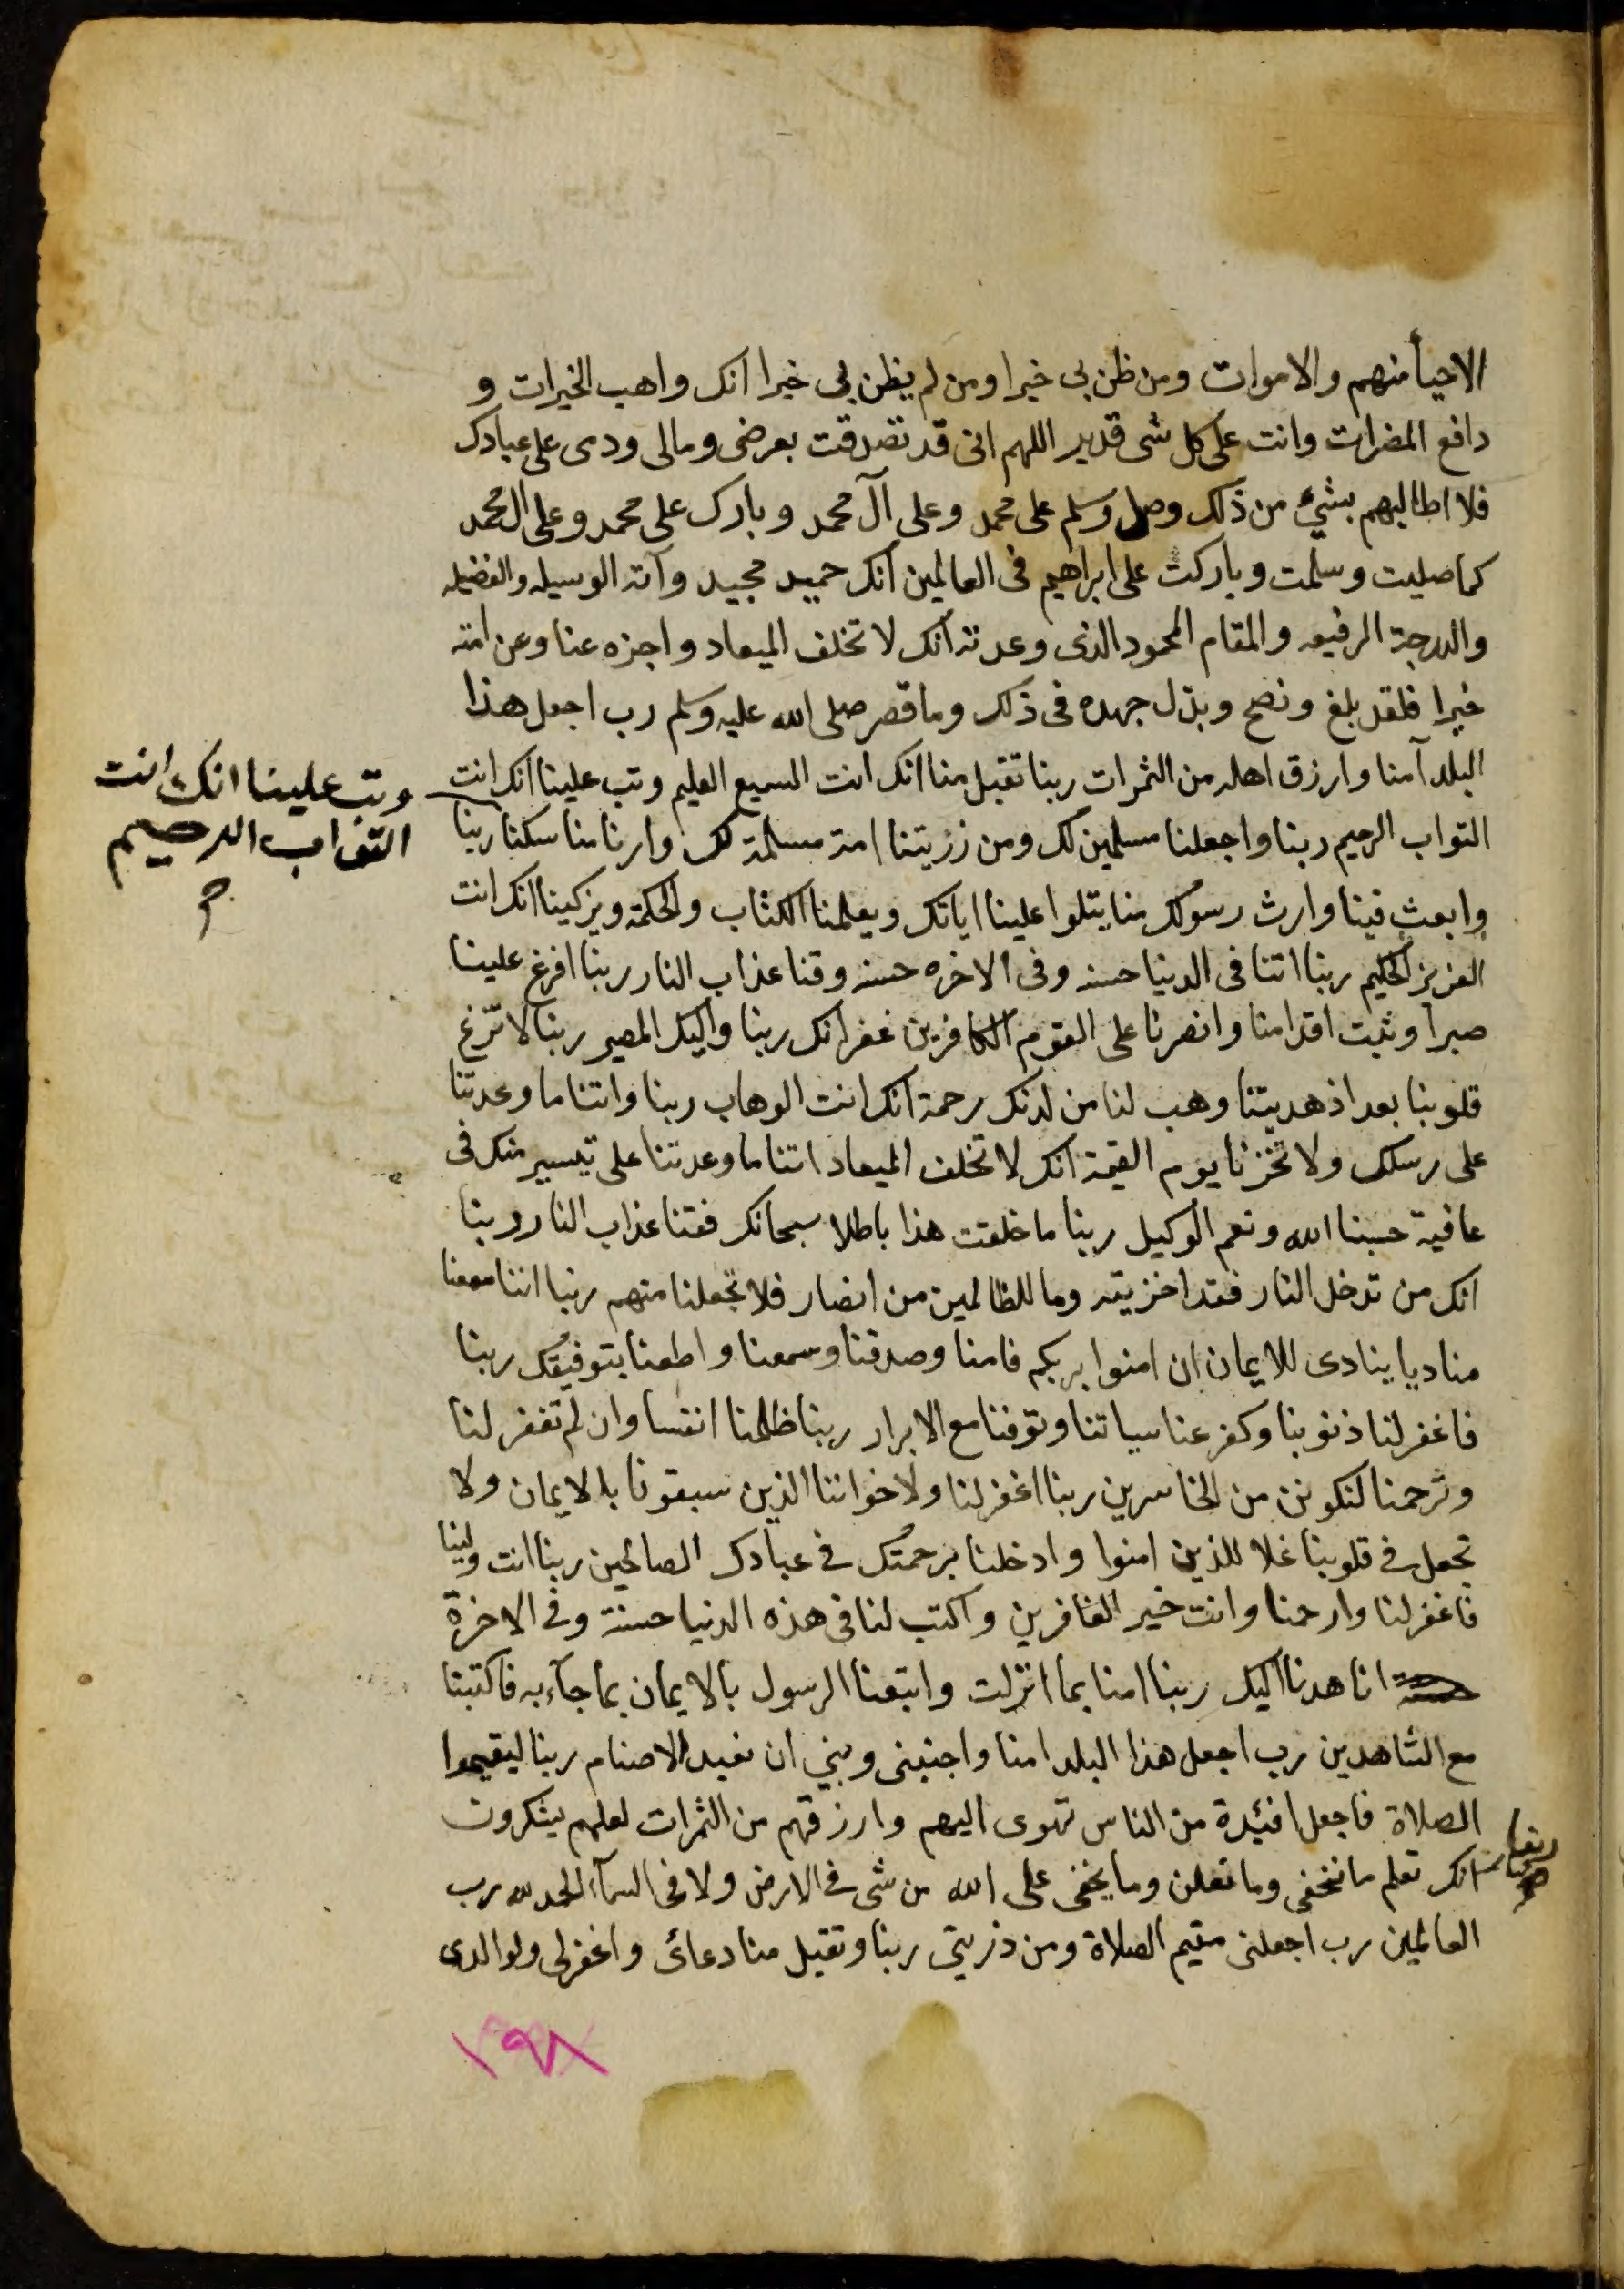 الاحيأ منهم والاموات ومن ظن بى خيرا ومن لم يظن بى خيرا انك واهب الخيرات و
دافع المضرات وانت على كل شى قدير اللهم انى قد تصدقت بعرضى ومالى ودمى على عبادك
فلا اطالبهم بشيء من ذلك وصل وسلم على محمد وعلى آل محمد وبارك على محمد وعلى ال محمد
كما صليت وسلمت وباركت على ابراهيم فى العالمين انك حميد مجيد وآته الوسيله والفضيله
والدرجة الرفيعه والمقام المحمود الذى وعدته انك لا تخلف الميعاد واجزه عنا وعن امته
خيرا فلقد بلغ ونصح وبذل جهده فى ذلك وما قصر صلى الله عليه وسلم رب اجعل هذا
البلد آمنا وارزق اهله من الثمرات ربنا تقبل منا انك انت السميع العليم وتب علينا انك انت
وتب علينا انك انت
التواب الرحيم
التواب الرحيم ربنا واجعلنا مسلمين لك ومن ذريتنا امة مسلمة لك وارنا مناسكنا ربنا
وابعث فينا وارث رسولك منا يتلوا علينا اياتك ويعلمنا الكتاب والحكمة ويزكينا انك انت
العزيز الحكيم ربنا اتنا فى الدنيا حسنه وفى الاخره حسنه وقنا عذاب النار ربنا افرغ علينا
صبرا وثبت اقدامنا وانصرنا على القوم الكافرين غفرانك ربنا واليك المصير ربنا لا تزغ
قلوبنا بعد اذ هديتنا وهب لنا من لدنك رحمة انك انت الوهاب ربنا واتنا ما وعدتنا
على رسلك ولا تخزنا يوم القيمة انك لا تخلف الميعاد اتنا ما وعدتنا على تيسير منك فى
عافية حسبنا الله ونعم الوكيل ربنا ما خلقت هذا باطلا سبحانك فقنا عذاب النار ربنا
انك من تدخل النار فقد اخزيته وما للظالمين من انصار فلا تجعلنا منهم ربنا اننا سمعنا
مناديا ينادى للايمان ان امنوا بربكم فامنا وصدقنا وسمعنا واطعنا بتوفيقك ربنا
فاغفر لنا ذنوبنا وكفر عنا سياتنا وتوفنا مع الابرار ربنا ظلمنا انفسنا وان لم تغفر لنا
وترحمنا لنكونن من الخاسرين ربنا اغفر لنا ولاخواننا الذين سبقونا بالايمان ولا
تجعل فى قلوبنا غلا للذين امنوا وادخلنا برحمتك فى عبادك الصالحين ربنا انت ولينا
فاغفر لنا وارحمنا وانت خير الغافرين واكتب لنا فى هذه الدنيا حسنة وفى الاخرة
حسنة انا هدنا اليك ربنا امنا بما انزلت واتبعنا الرسول بالايمان بما جآء به فاكتبنا
مع الشاهدين رب اجعل هذا البلد امنا واجنبنى وبني ان نعبد الاصنام ربنا ليقيموا
الصلاة فاجعل افئيدة من الناس تهوى اليهم وارزقهم من الثمرات لعلهم يشكرون
ربنا
انك تعلم ما نخفى وما نعلن وما يخفى على الله من شى فى الارض ولا فى السمآء الحمد لله رب
العالمين رب اجعلنى مقيم الصلاة ومن ذريتى ربنا وتقبل منا دعائى واغفرلى ولوالدى
١٩٨